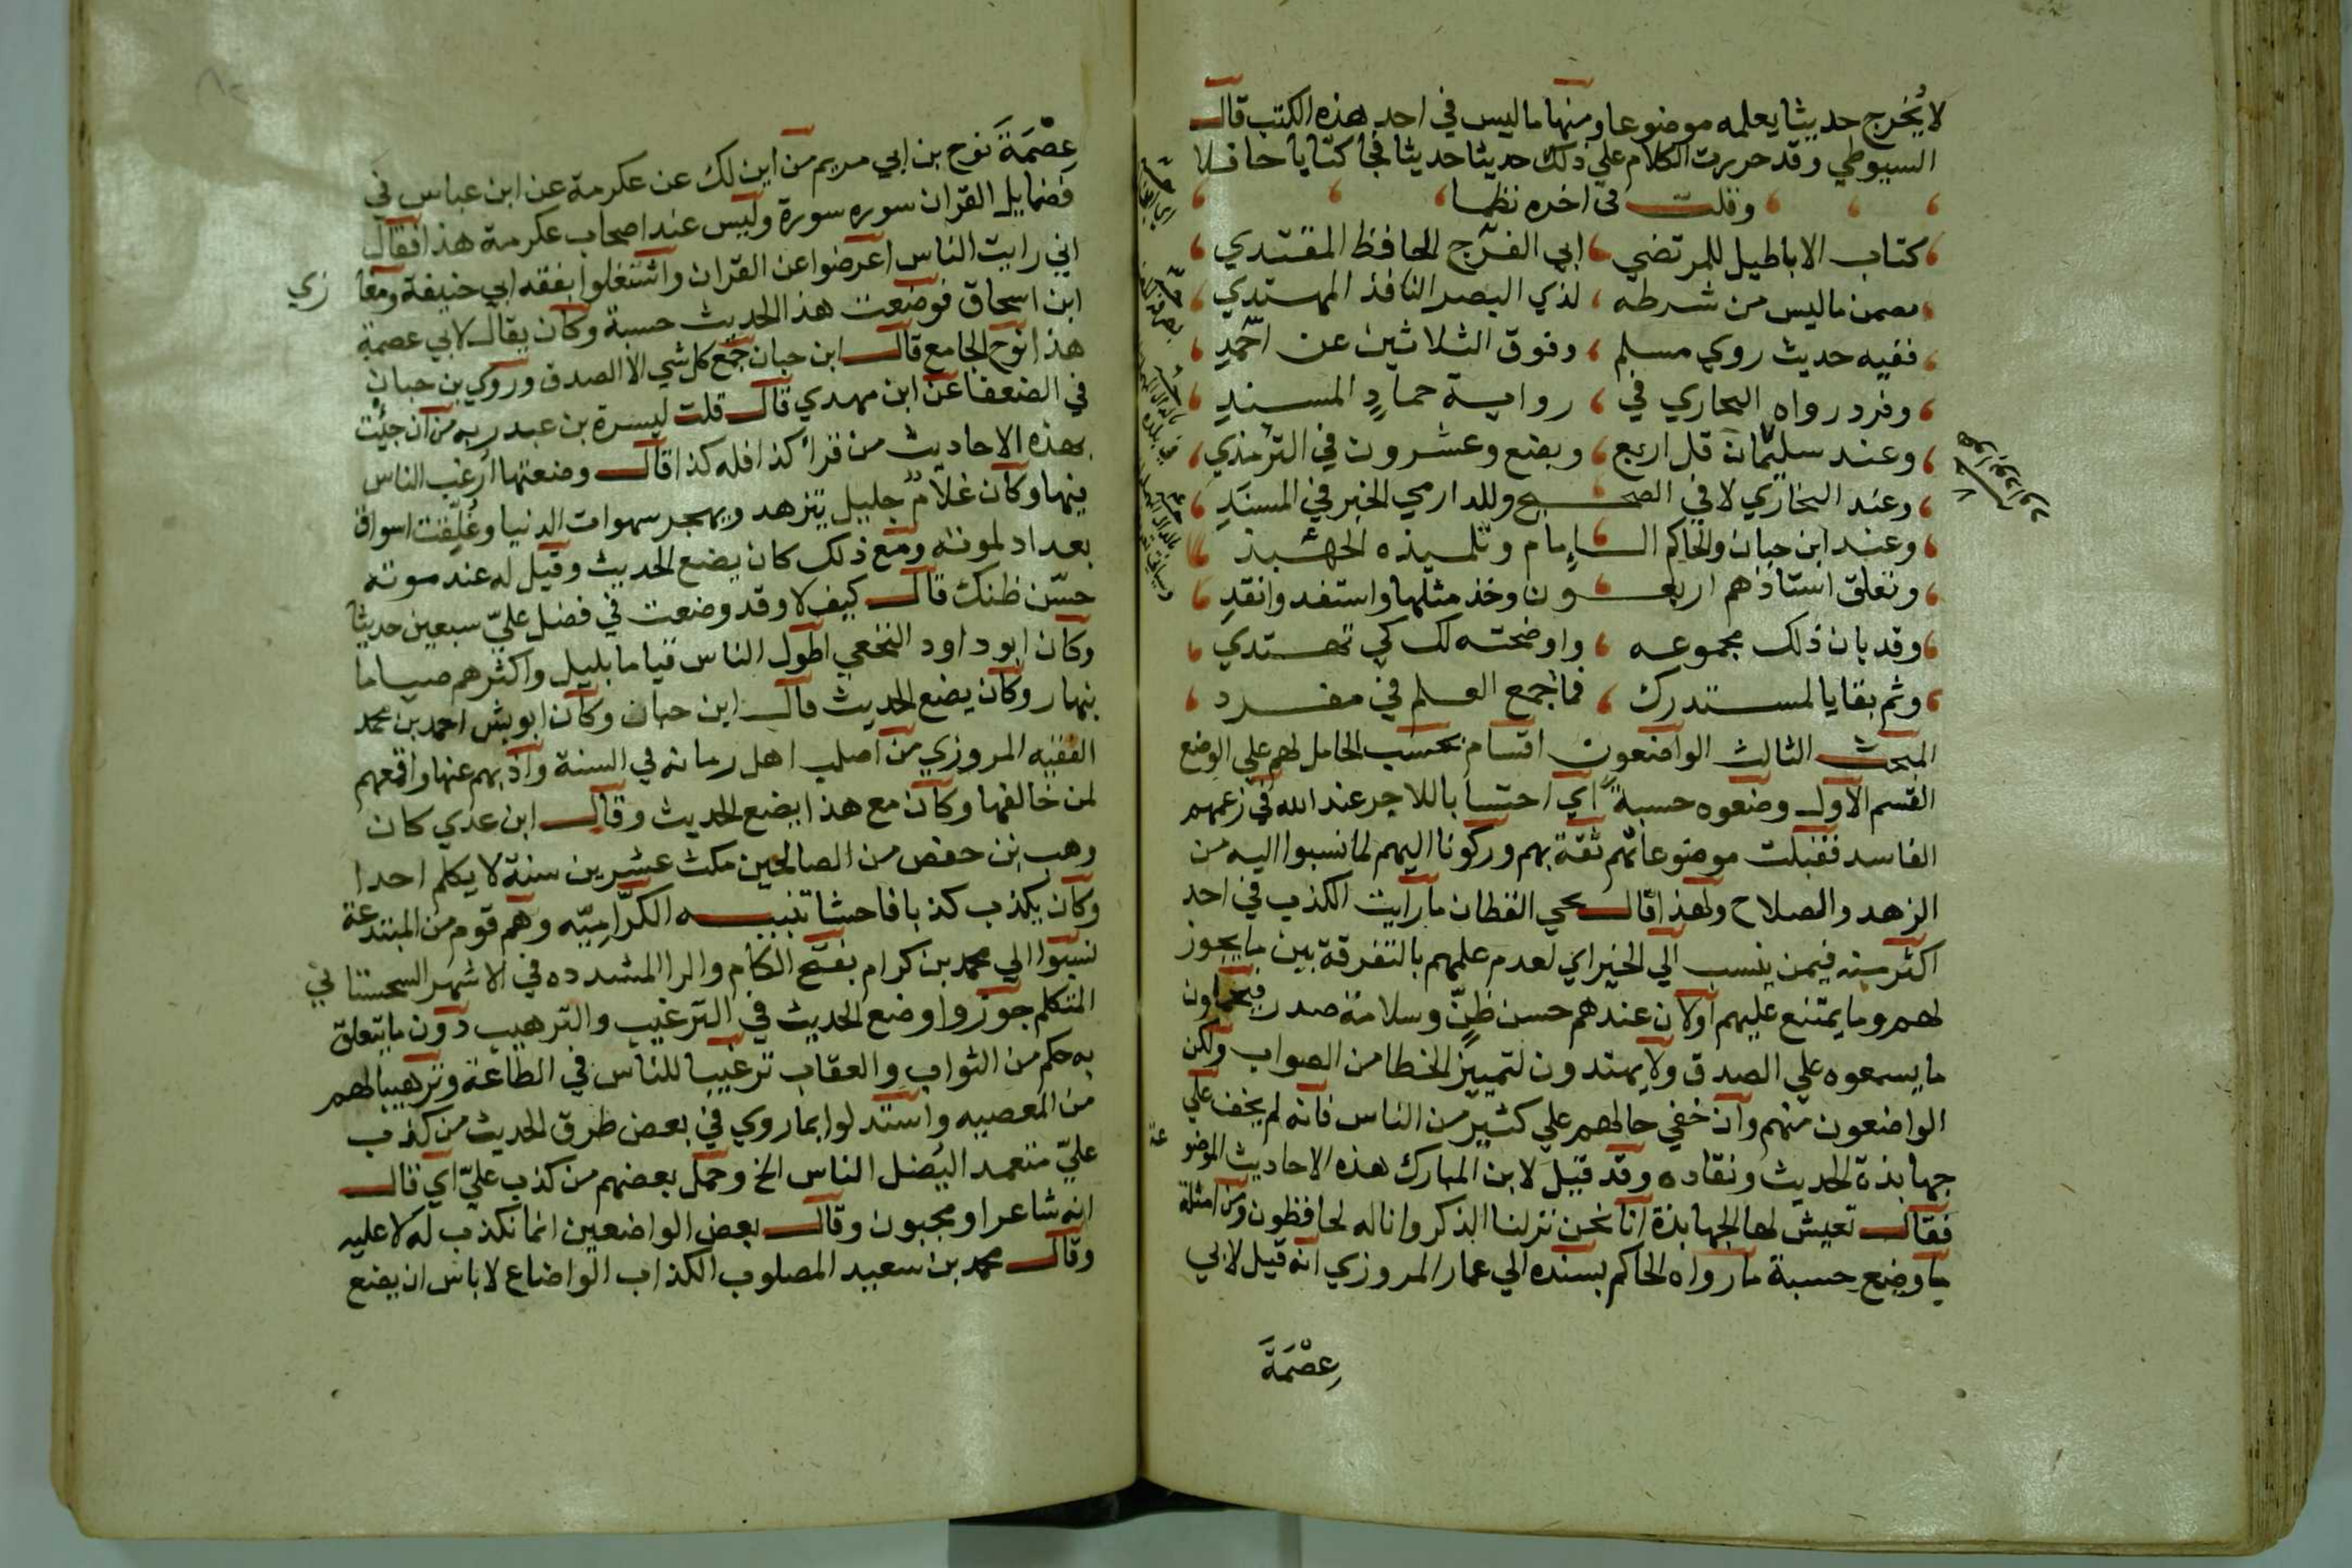 لا يُخرج حديثا يعلمه موضوعا ومنها ما ليس في احد هذه الكتب قال
السيوطي وقد حررت الكلام علي ذلك حديثا حديثا فجأ كتابا حافلا
وقلت في اخره نظما
كتاب الاباطيل للمرتضي ، ابي الفرج الحافظ المقتدي
تضمن ما ليس من شرطه ، لذي البصر النافذ المهتدي
ففيه حديث روي مسلم ، وفوق الثلاثين عن احمد
وفرد رواه البخاري في ، رواية حمادٍ المسندِ
وعند سليمان قل اربع ، وبضع وعشرون في الترمذي
وعند البخاري لا في الصحيح وللدارمي الخبر في المسندِ
وعند ابن حبان والحاكم الإمام وتلميذه الجهبذ
وتعلق استاذهم اربعون وخذ مثلها واستفد وانقدِ
وقد بان ذلك مجموعه ، واوضحته لك كي تهتدي
وثم بقايا لمستدرك ، فما جمع العلم في مفرد
المبحث الثالث الواضعون اقسام بحسب الحامل لهم علي الوضع
القسم الاول وضعوه حسبة اي احتسابا للاجر عند الله في زعمهم
الفاسد فقبلت موضوعاتهم ثقة بهم وركونا اليهم لما نسبوا اليه من
الزهد والصلاح ولهذا قال يحي القطان ما رايت الكذب في احد
اكثر منه فيمن ينسب الي الخير اي لعدم علمهم بالتفرقة بين ما يجوز
لهم وما يمتنع عليهم اولان عندهم حسن ظنّ وسلامة صدر فيحملون
ما يسمعوه علي الصدق ولا يهتدون لتمييز الخطا من الصواب ولكن
الواضعون منهم وان خفي حالهم علي كثير من الناس فانه لم يخف علي
جهابذة الحديث ونقاده وقد قيل لابن المبارك هذه الاحاديث الموضوعة
فقال تعيش لها الجهابذة انا نحن نزلنا الذكر وانا له لحافظون ومن امثلة
ما وضع حسبة ما رواه الحاكم بسنده الي عمار المروزي انه قيل لابي
عِصْمَةَ
عِصْمَةَ نوح بن ابي مريم من اين لك عن عكرمة عن ابن عباس في
فضايل القران سوره سورة وليس عند اصحاب عكرمة هذا فقال
اني رايت الناس اعرضوا عن القران واشتغلوا بفقه ابي حنيفة ومغازي
ابن اسحاق فوضعت هذا الحديث حسبة وكان يقال لابي عصمة
هذا نوح الجامع قال ابن حبان جمع كل شي الا الصدق وروي بن حبان
في الضعفا عن ابن مهدي قال قلت ليسرة بن عبد ربه من ان جئت
بهذه الاحاديث من قرأ كذا فله كذا قال وضعتها ارغب الناس
فيها وكان غلامٌ جليل يتزهد ويهجر سهوات الدنيا وغُلِّقت اسواق
بغداد لموته ومع ذلك كان يضع الحديث وقيل له عند موته
حسّن ظنك قال كيف لا وقد وضعت في فضل عليّ سبعين حديثا
وكان ابو داود النخعي اطول الناس قياما بليل واكثرهم صياما
بنهار وكان يضع الحديث قال ابن حبان وكان ابو بشر احمد بن محمد
الفقيه المروزي من اصلب اهل زمانه في السنة واذبهم عنها واقمعهم
لمن خالفها وكان مع هذا يضع الحديث وقال ابن عدي كان
وهب بن حفص من الصالحين مكث عشرين سنة لا يكلم احدا
وكان يكذب كذبا فاحشا تنبيه الكرّاميّه وهم قوم من المبتدعة
نسبوا الي محمد بن كرام بفتح الكام والرا المشدده في الاشهر السجستاني
المتكلم جوزوا وضع الحديث في الترغيب والترهيب دون ما يتعلق
به حكم من الثواب والعقاب ترغيبا للناس في الطاعة وترهيبا لهم
من المعصيه واستدلوا بما روي في بعض طرق الحديث من كذب
عليّ متعمد اليضل الناس الخ وحمل بعضهم من كذب عليّ اي قال
انه شاعر او مجبون وقال بعض الواضعين انما نكذب له لا عليه
وقال محمد بن سعيد المصلوب الكذاب الواضاع لا باس ان يضع